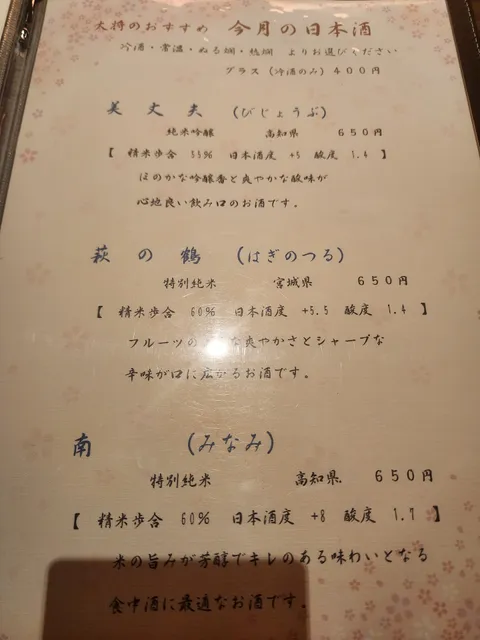 大将のおすすめ 今月の日本酒
冷酒・常温・ぬる燗・熱燗 よりお選びください
グラス（冷酒のみ）４００円
美丈夫 （びじょうぶ）
純米吟醸 高知県 ６５０円
【 精米歩合 55% 日本酒度 +5 酸度 1.4 】
ほのかな吟醸香と爽やかな酸味が
心地良い飲み口のお酒です。
萩の鶴 （はぎのつる）
特別純米 宮城県 ６５０円
【 精米歩合 60% 日本酒度 +5.5 酸度 1.4 】
フルーツの な爽やかさとシャープな
辛味が口に広がるお酒です。
南 （みなみ）
特別純米 高知県 ６５０円
【 精米歩合 60% 日本酒度 +8 酸度 1.7 】
米の旨みが芳醇でキレのある味わいとなる
食中酒に最適なお酒です。